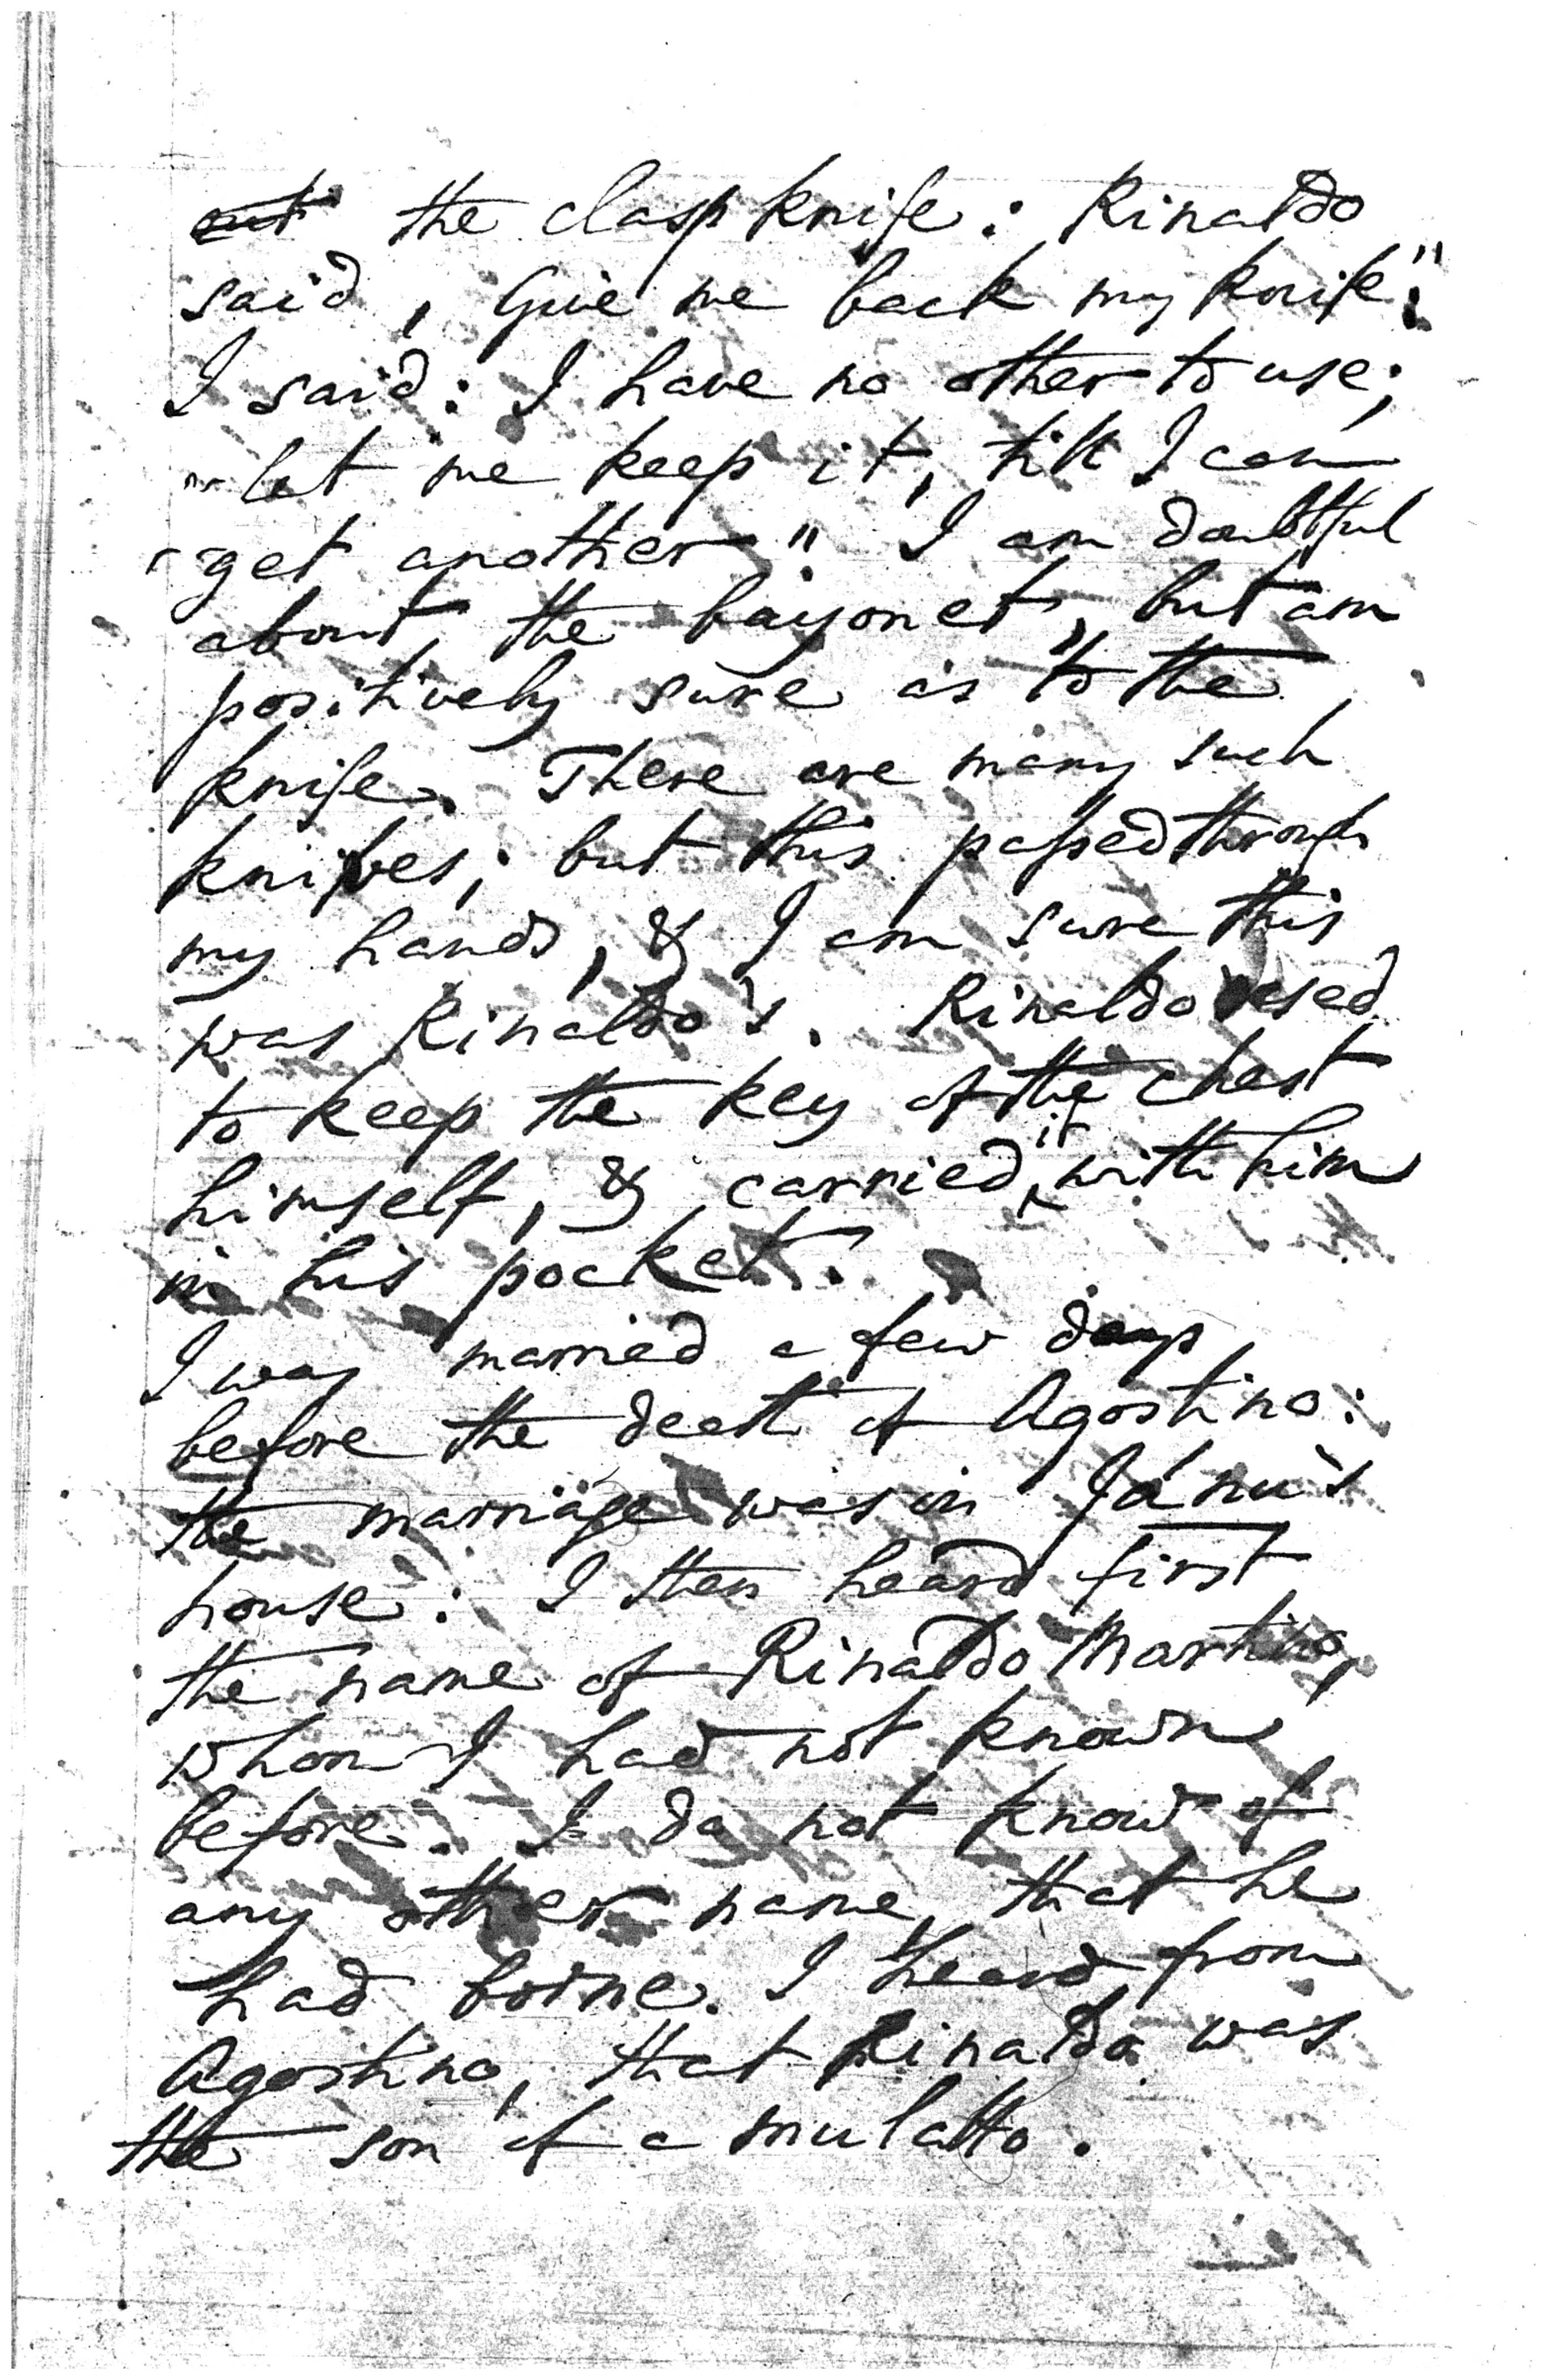 out the clasp knife: Rinaldo
said, "Give me back my knife":
I said: I have no other to use;
"let me keep it, till I can
"get another". I am doubtful
about the bayonet, but am
positively sure as to the
knife. There are many such
knives; but this passed through
my hands, & I am sure this
was Rinaldo's. Rinaldo used
to keep the key of the chest
himself, & carried it with him
in his pocket.
I was married a few days
before the death of Agostino:
the marriage was in Jánu's
house: I then heard first
the name of Rinaldo Martins,
whom I had not known
before. I do not know of
any other name that he
had borne. I heard from
Agostino, that Rinaldo was
the son of a mulatto.